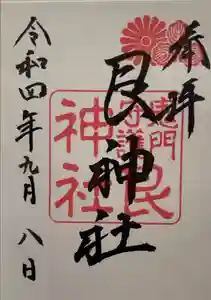 奉拝
艮神社
鬼門
守護
艮
神社
令和四年九月八日